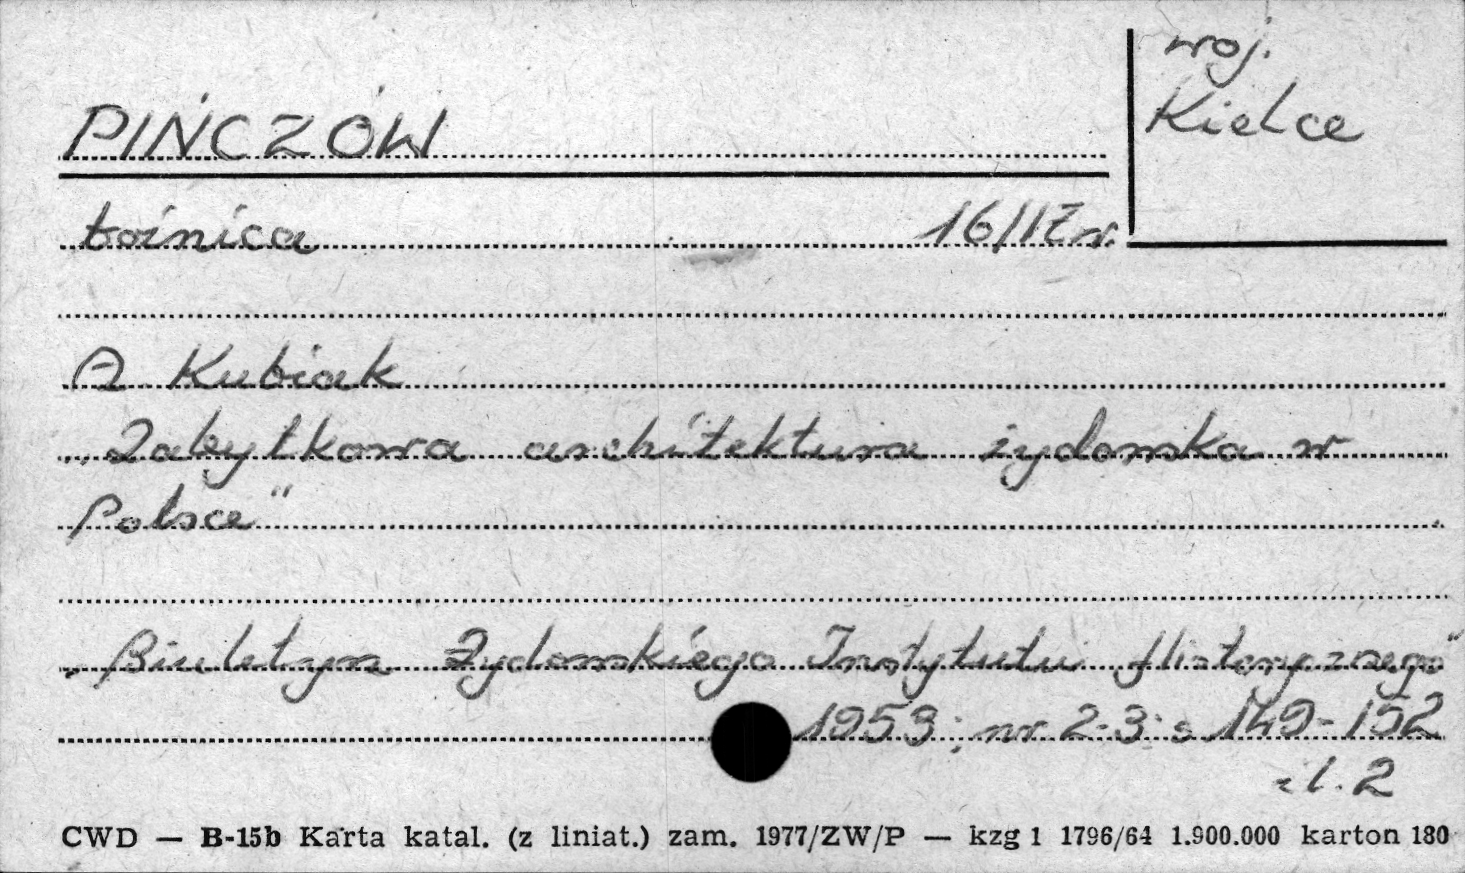 woj.
Kielce
PIŃCZÓW
bóżnica 16/17 w.
A Kubiak
„Zabytkowa architektura żydowska w
Polsce"
„Biuletyn Żydowskiego Instytutu Historycznego"
1953; nr 2-3; s 149-152
il. 2
CWD — B-15b Karta katal. (z liniat.) zam. 1977/ZW/P — kzg 1 1796/64 1.900.000 karton 180